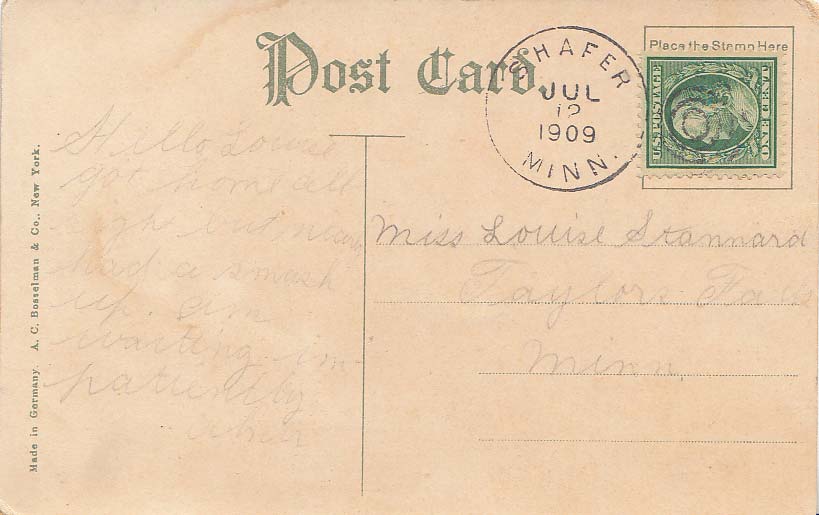 Post Card.
Place the Stamp Here
SHAFER
JUL
12
1909
MINN.
U.S. POSTAGE
ONE CENT
Made in Germany. A. C. Bosselman & Co., New York.
Hello
got home all
right but
had a smash
up. am
waiting im-
patiently
Miss Louise Stannard
Taylors Falls
Minn.